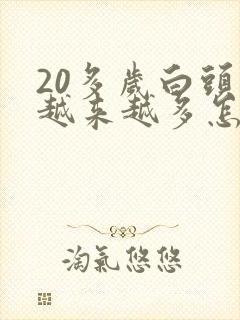 20多歲白頭
越来越多怎
淘氣悠悠